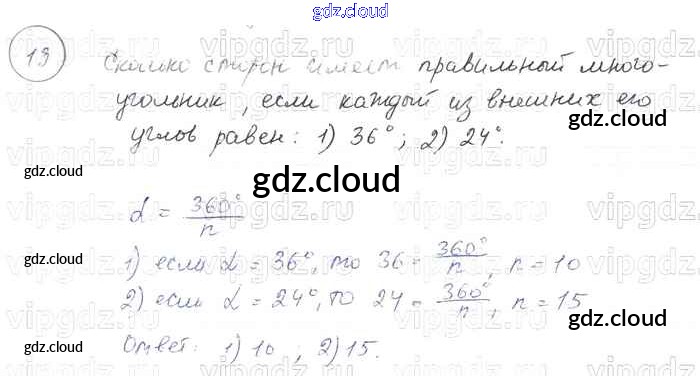 gdz.cloud
13 Сколько сторон имеет правильный много-
угольник, если каждый из внешних его
углов равен: 1) 36°; 2) 24°.
gdz.cloud
gdz.cloud
gdz.cloud
α = 360°/n
1) если α = 36°, то 36 = 360°/n, n = 10
gdz.cloud
2) если α = 24°, то 24 = 360°/n, n = 15
gdz.cloud
Ответ: 1) 10 ; 2) 15.
gdz.cloud
gdz.cloud